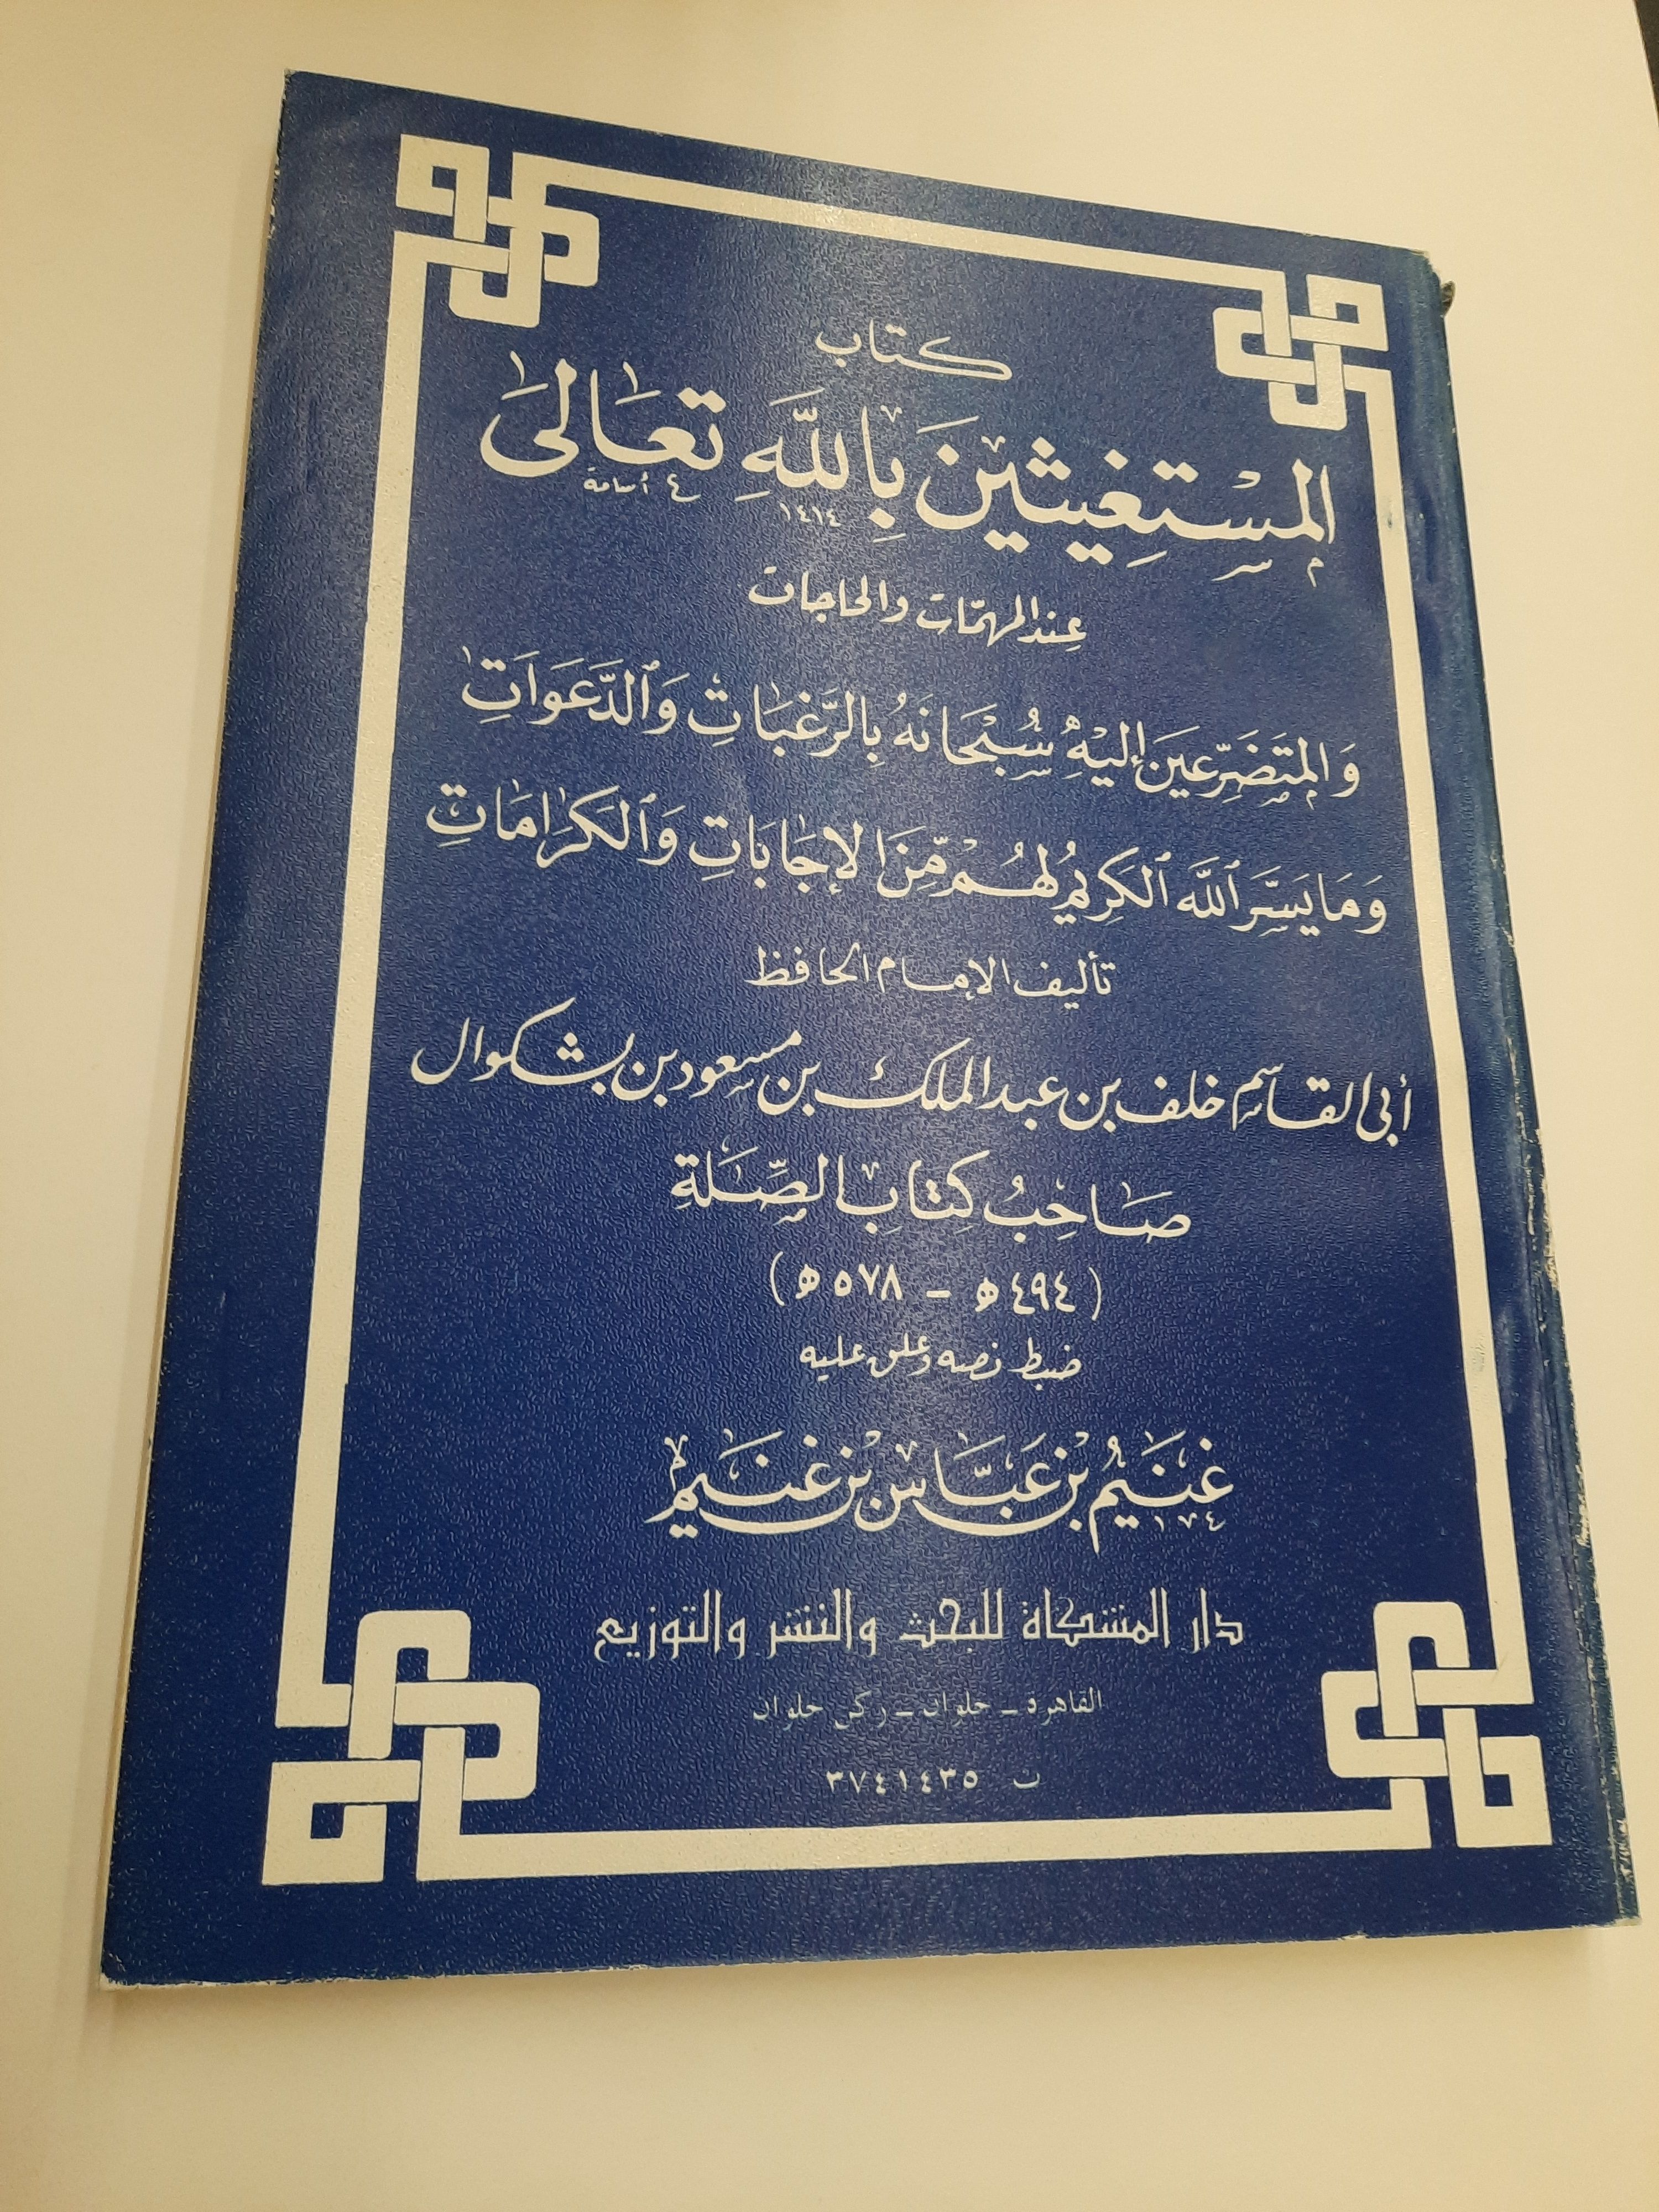 كتاب
المستغيثين بالله تعالى
١٤١٤ ٤ أسامة
عند المهمّات والحاجات
وَالمتَضَرِّعينَ إليْهِ سُبْحَانَهُ بِالرَّغبَاتِ وَالدَّعَوَاتِ
وَمَا يسَّرَ اللَّه الكَرِيمُ لهُمْ مِّنَ الإجَابَاتِ وَالكَرَامَاتِ
تأليف الإمام الحافظ
أبي القاسم خلف بن عبد الملك بن مسعود بن بشكوال
صَاحِبُ كِتَابِ الصِّلَةِ
(٤٩٤ ه - ٥٧٨ ه)
ضبط نصه وعلق عليه
غنَيمُ بْنُ عَبَّاسِ بْنِ غنَيمْ
دار المشكاة للبحث والنشر والتوزيع
القاهرة - حلوان - ركن حلوان
ت ٣٧٤١٤٣٥